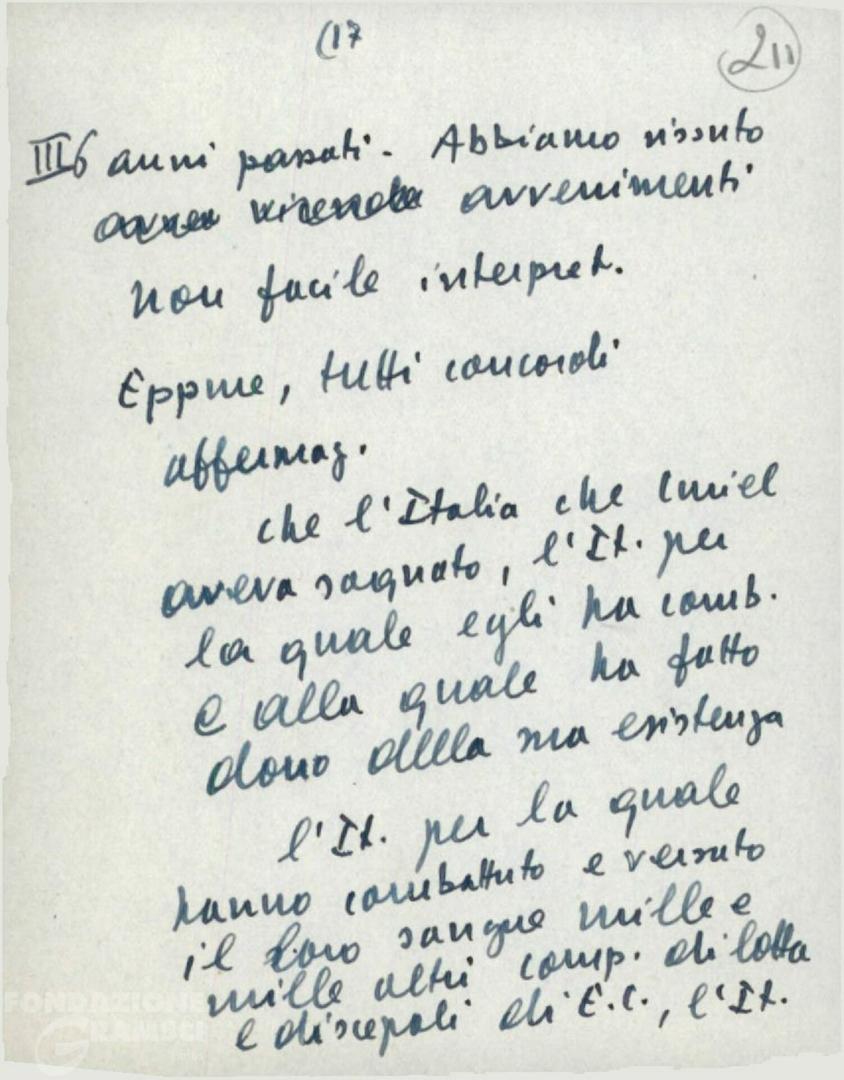 (17
211
III 6 anni passati. Abbiamo vissuto
avvenimenti
non facile interpret.
Eppure, tutti concordi
affermaz.
che l'Italia che Curiel
aveva sognato, l'It. per
la quale egli ha comb.
e alla quale ha fatto
dono della sua esistenza
l'It. per la quale
hanno combattuto e versato
il loro sangue mille e
mille altri comp. di lotta
e discepoli di E.C., l'It.
FONDAZIONE
GRAMSCI